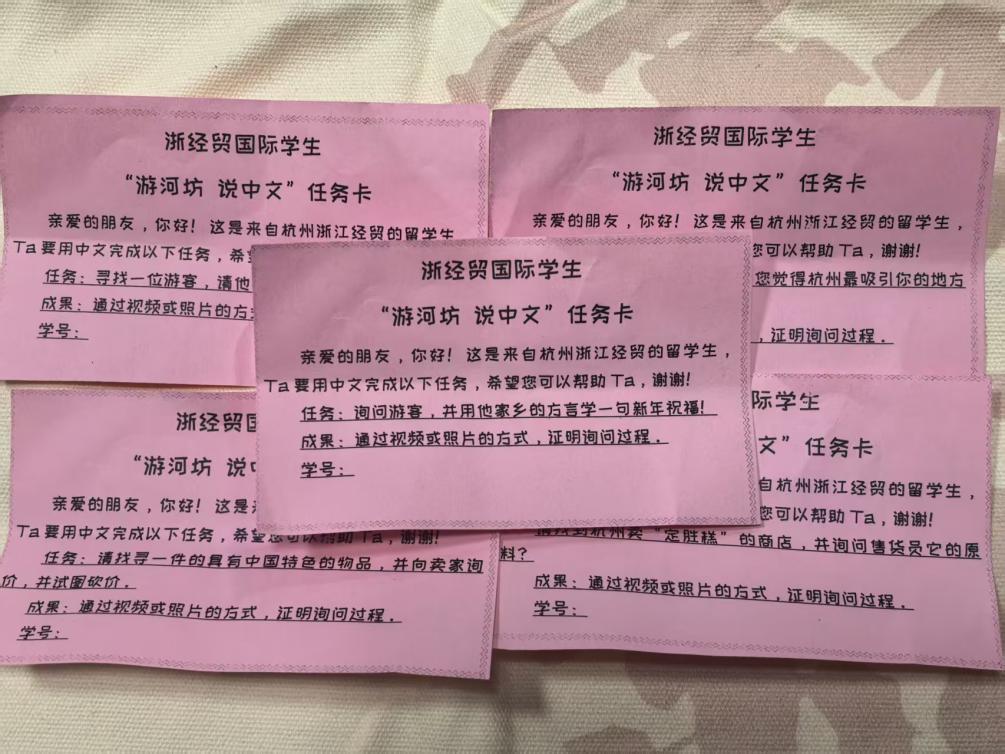 浙经贸国际学生
“游河坊 说中文”任务卡
亲爱的朋友，你好！这是来自杭州浙江经贸的留学生
Ta要用中文完成以下任务，希
任务：寻找一位游客，请他
成果：通过视频或照片的方式
学号：
浙经贸国际学生
“游河坊 说中文”任务卡
亲爱的朋友，你好！这是来自杭州浙江经贸的留学生，
您可以帮助Ta，谢谢！
您觉得杭州最吸引你的地方
，证明询问过程。
浙经贸国际学生
“游河坊 说中文”任务卡
亲爱的朋友，你好！这是来自杭州浙江经贸的留学生，
Ta要用中文完成以下任务，希望您可以帮助Ta，谢谢！
任务：询问游客，并用他家乡的方言学一句新年祝福！
成果：通过视频或照片的方式，证明询问过程。
学号：
浙经贸国
“游河坊 说中
亲爱的朋友，你好！这是
Ta要用中文完成以下任务，希望您可以帮助Ta，谢谢！
任务：请找寻一件的具有中国特色的物品，并向卖家询
价，并试图砍价。
成果：通过视频或照片的方式，证明询问过程。
学号：
际学生
文”任务卡
自杭州浙江经贸的留学生，
您可以帮助Ta，谢谢！
请找到杭州卖“定胜糕”的商店，并询问售货员它的原
料？
成果：通过视频或照片的方式，证明询问过程。
学号：